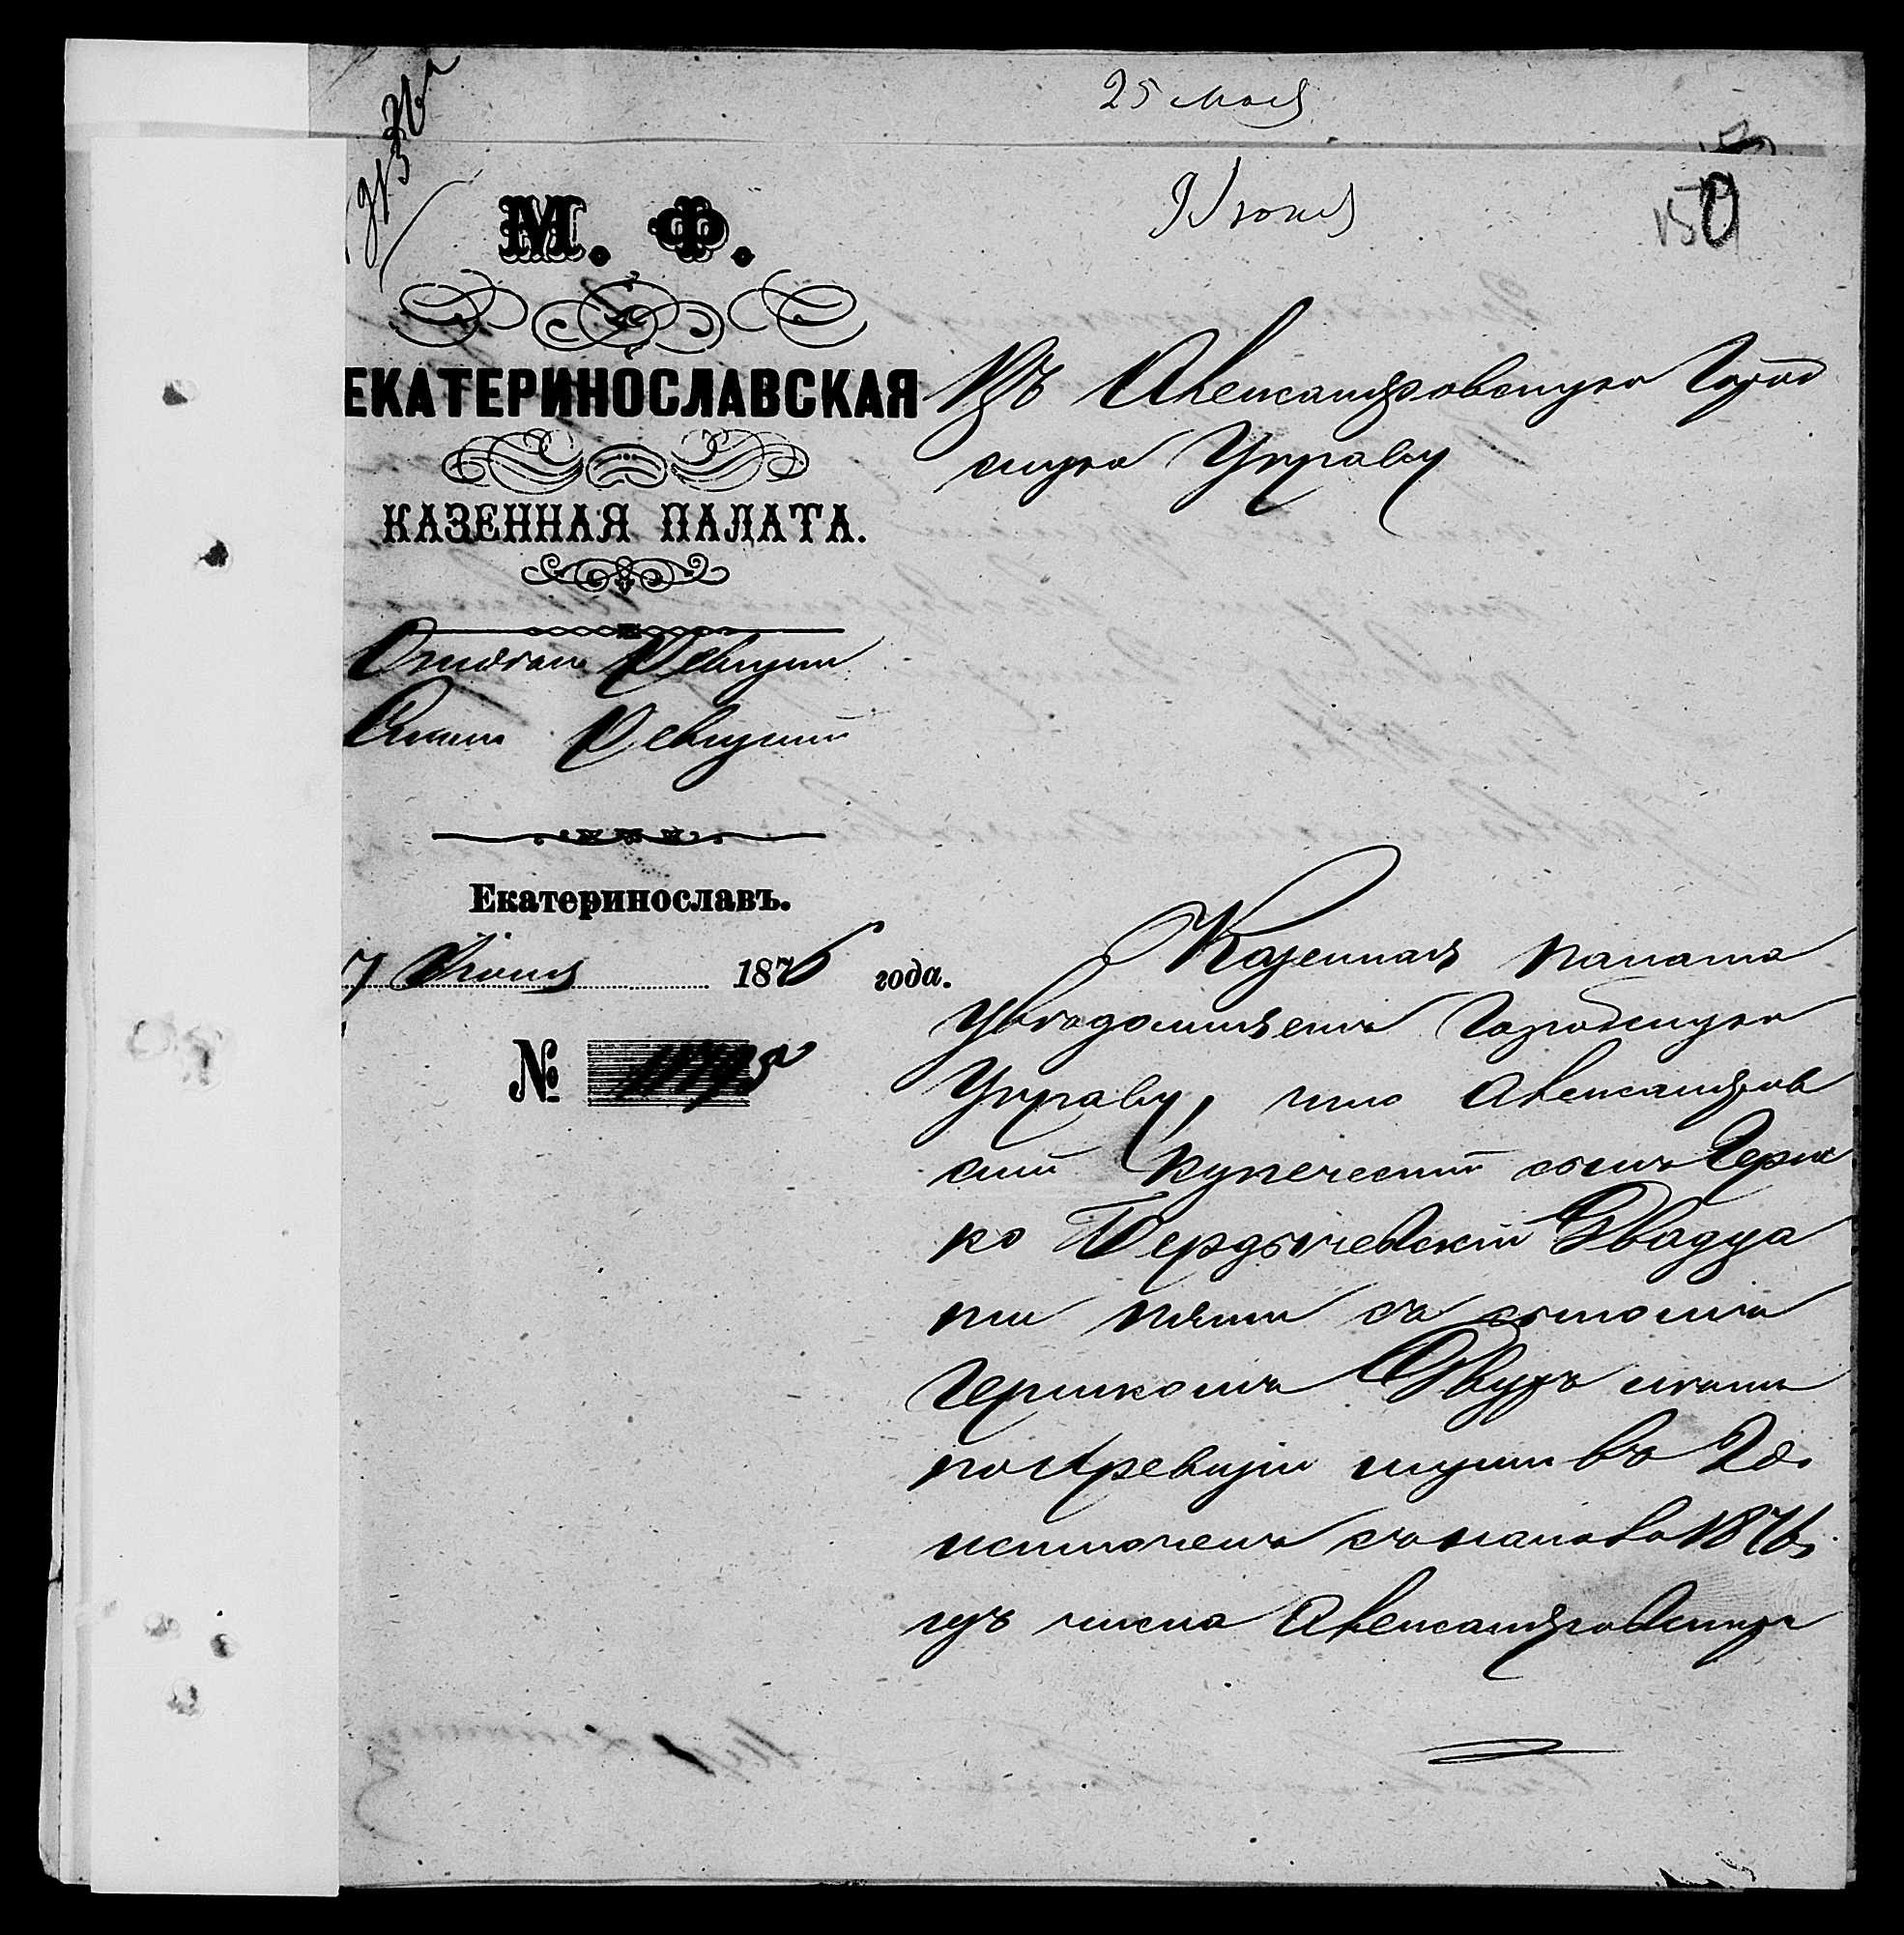 25 мая
9 Июня
150
М. Ф.
ЕКАТЕРИНОСЛАВСКАЯ
КАЗЕННАЯ ПАЛАТА.
Отдѣлъ Ревизіи
Столъ Ревизскій
Екатеринославъ.
7 Іюня 1876 года.
№
Въ Александровскую Город
скую Управу
Казенная палата
увѣдомляетъ Городскую
Управу, что Александров
скій купеческій сынъ Герш
ко Бердычевскій двадца
ти пяти съ сыномъ
Гершкомъ двухъ лѣтъ
по ревизіи въ 20.
исключенъ съ начала 1876 г.
изъ числа Александровскихъ